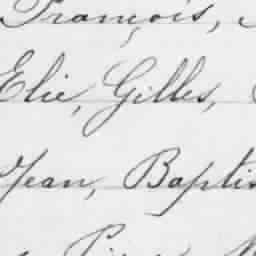 François,
Elie, Gilles,
Jean, Baptis